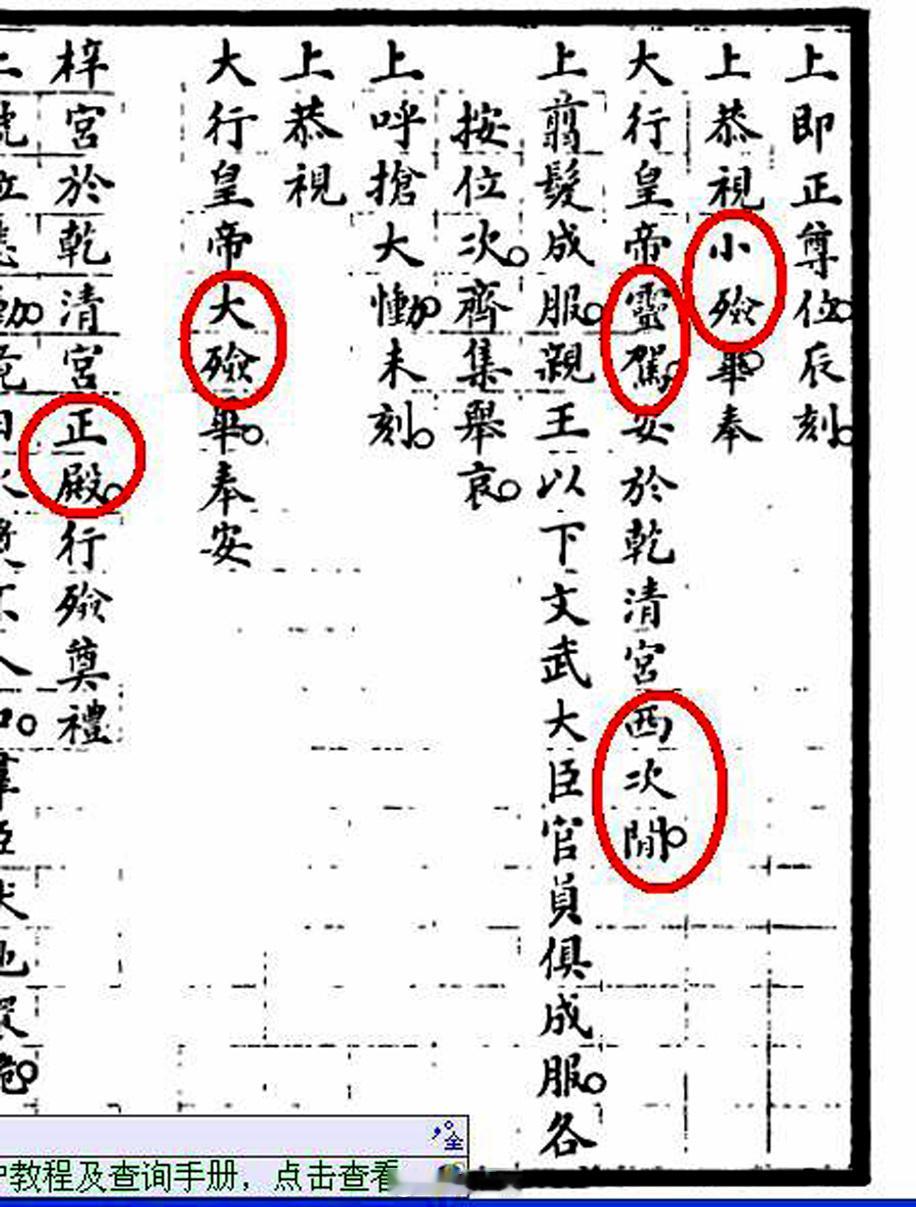 上即正尊位。辰刻。
上恭視小殮畢。奉
大行皇帝靈駕。安於乾清宮西次間。
上翦髮成服。親王以下文武大臣官員俱成服。各
按位次。齊集舉哀。
上呼搶大慟。未刻。
上恭視
大行皇帝大殮畢。奉安
梓宮於乾清宮正殿。行殮奠禮
教程及查询手册，点击查看